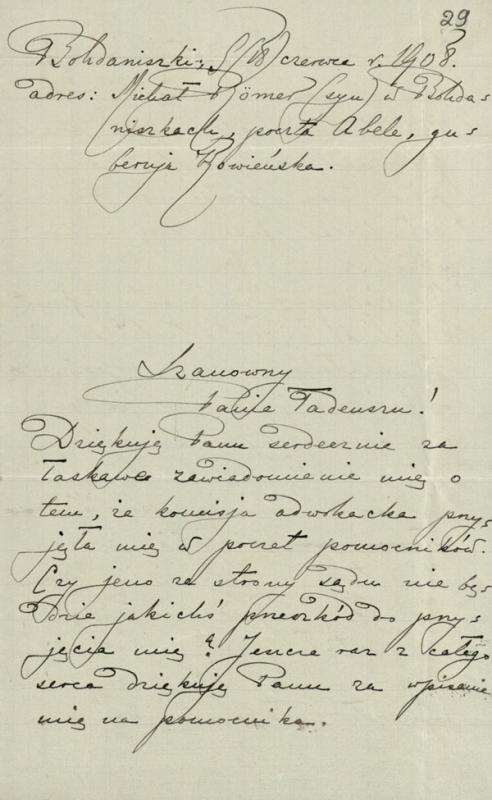 29
Bohdaniszki, 5 (18) czerwca r. 1908.
adres: Michał Römer (syn) w Bohda=
niszkach, poczta Abele, gu=
bernja Kowieńska.
Szanowny
Panie Tadeuszu!
Dziękuję Panu serdecznie za
łaskawe zawiadomienie mię o
tem, że komisja adwokacka przy=
jęła mię w poczet pomocników.
Czy jeno ze strony sądu nie bę=
dzie jakichś przeszkód do przy=
jęcia mię? Jeszcze raz z całego
serca dziękuję Panu za wpisanie
mię na pomocnika.